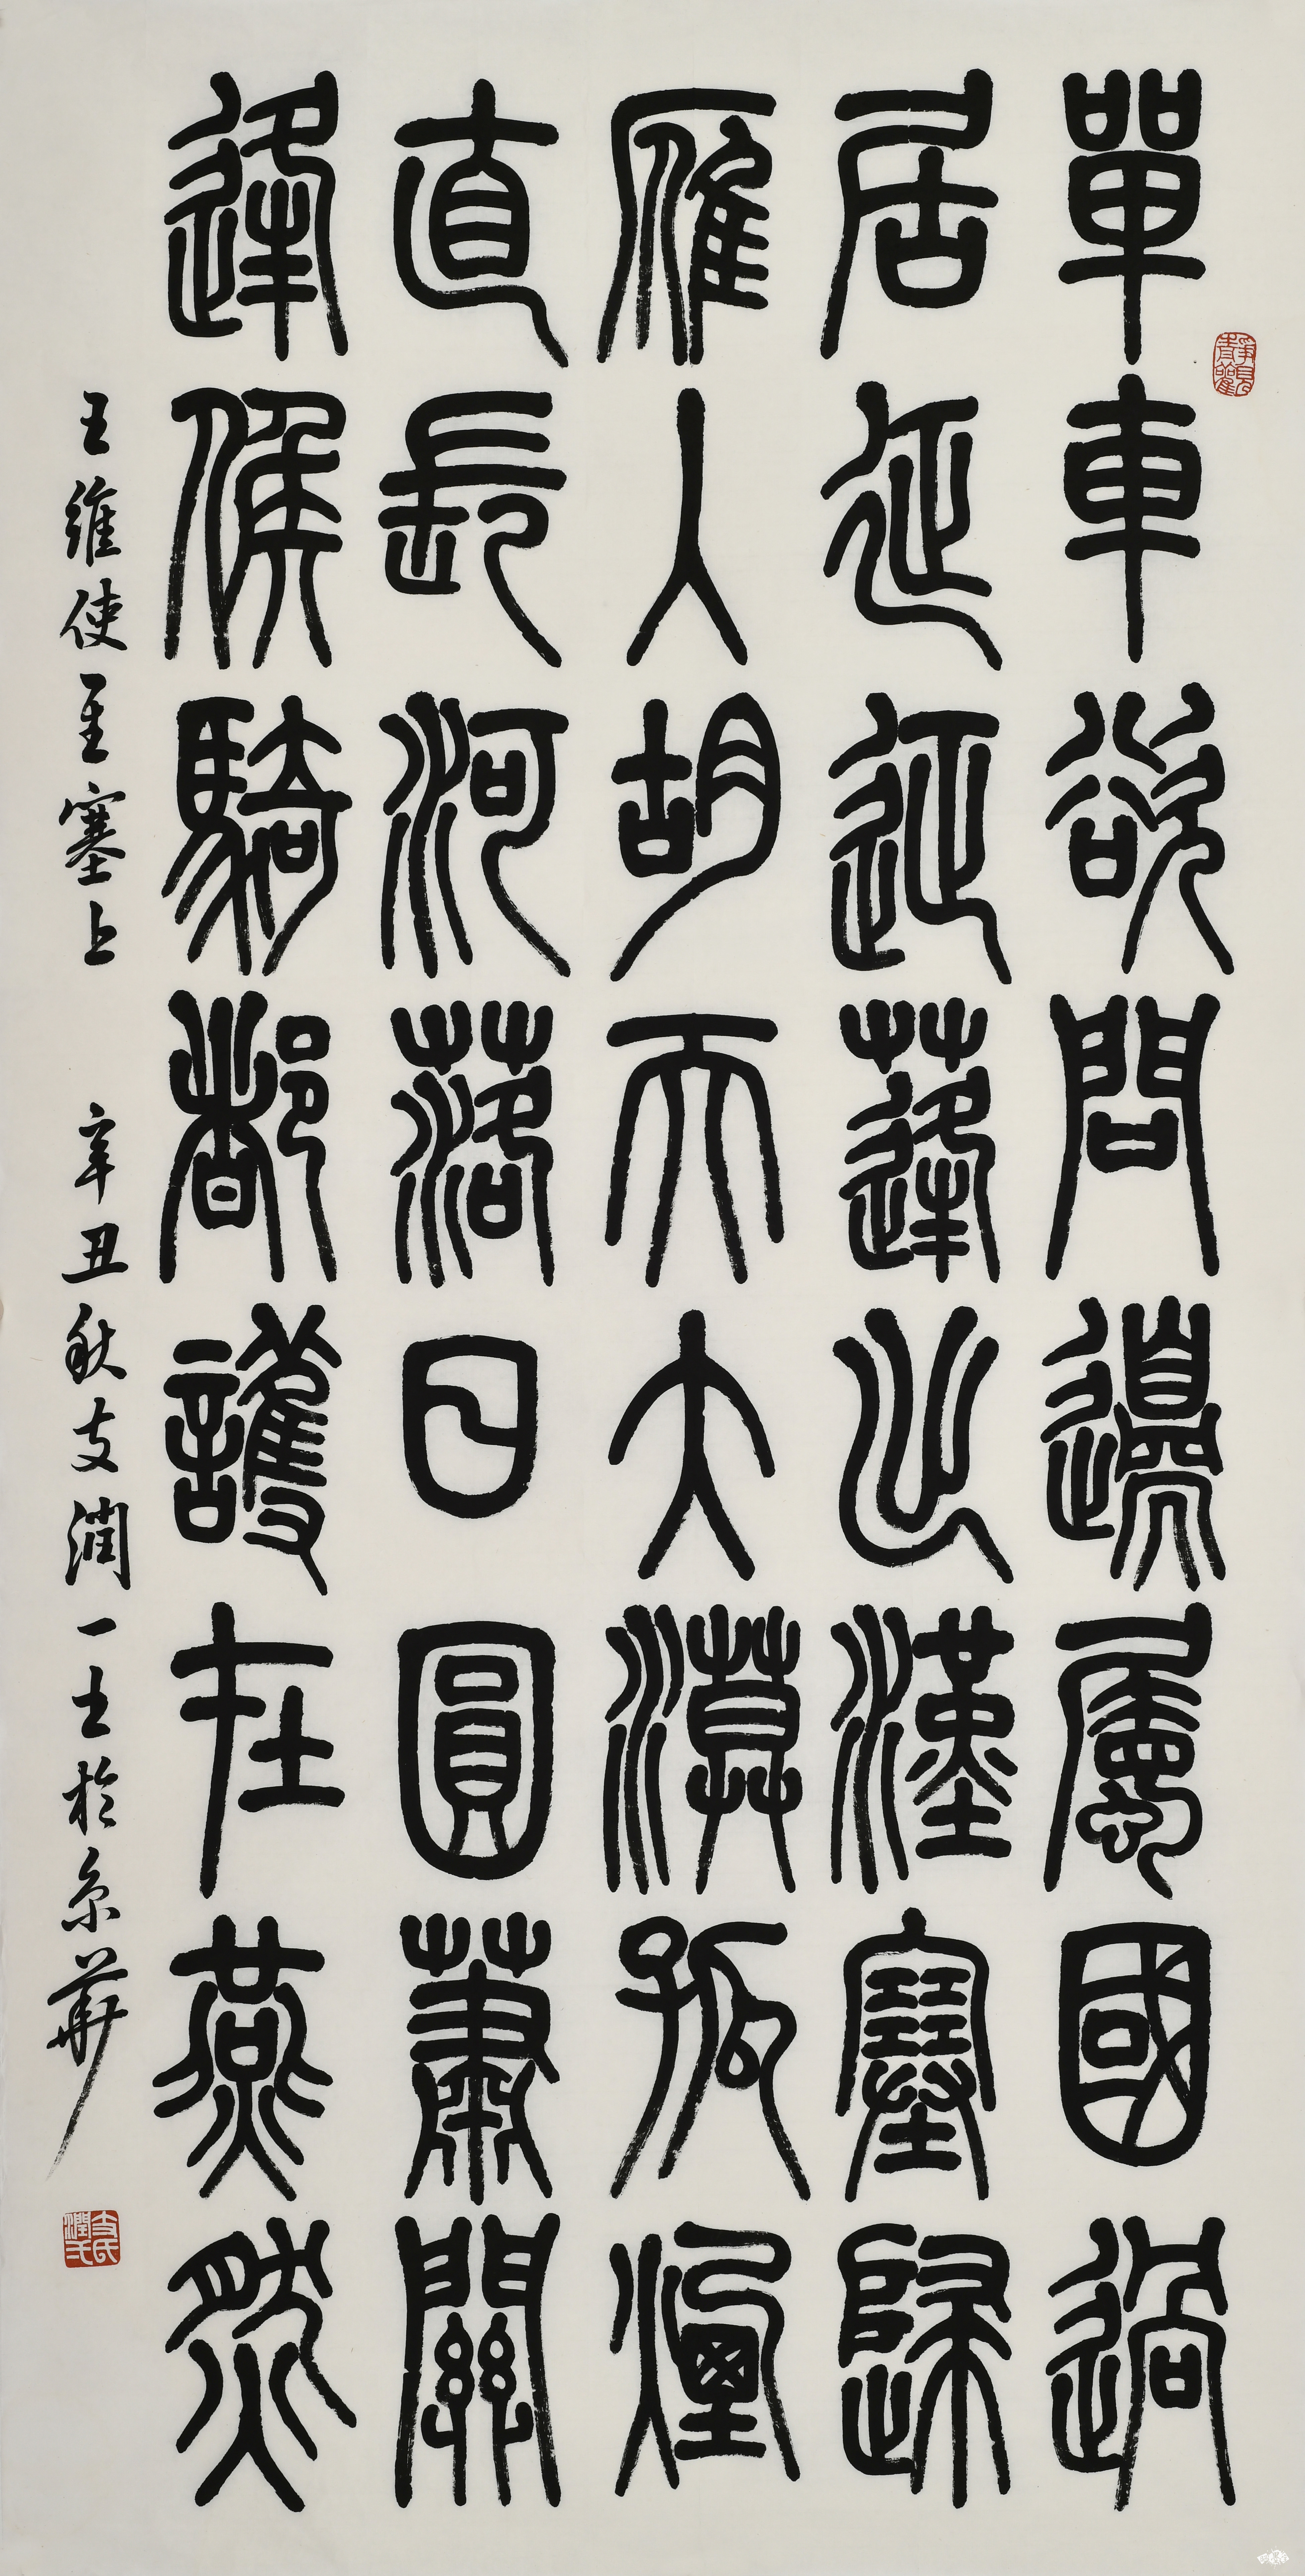 單車欲問邊屬國過
居延征蓬出漢塞歸
雁入胡天大漠孤煙
直長河落日圓蕭關
逢候騎都護在燕然
王維使至塞上 辛丑秋支潤一士於京華
靜觀
支氏潤弌